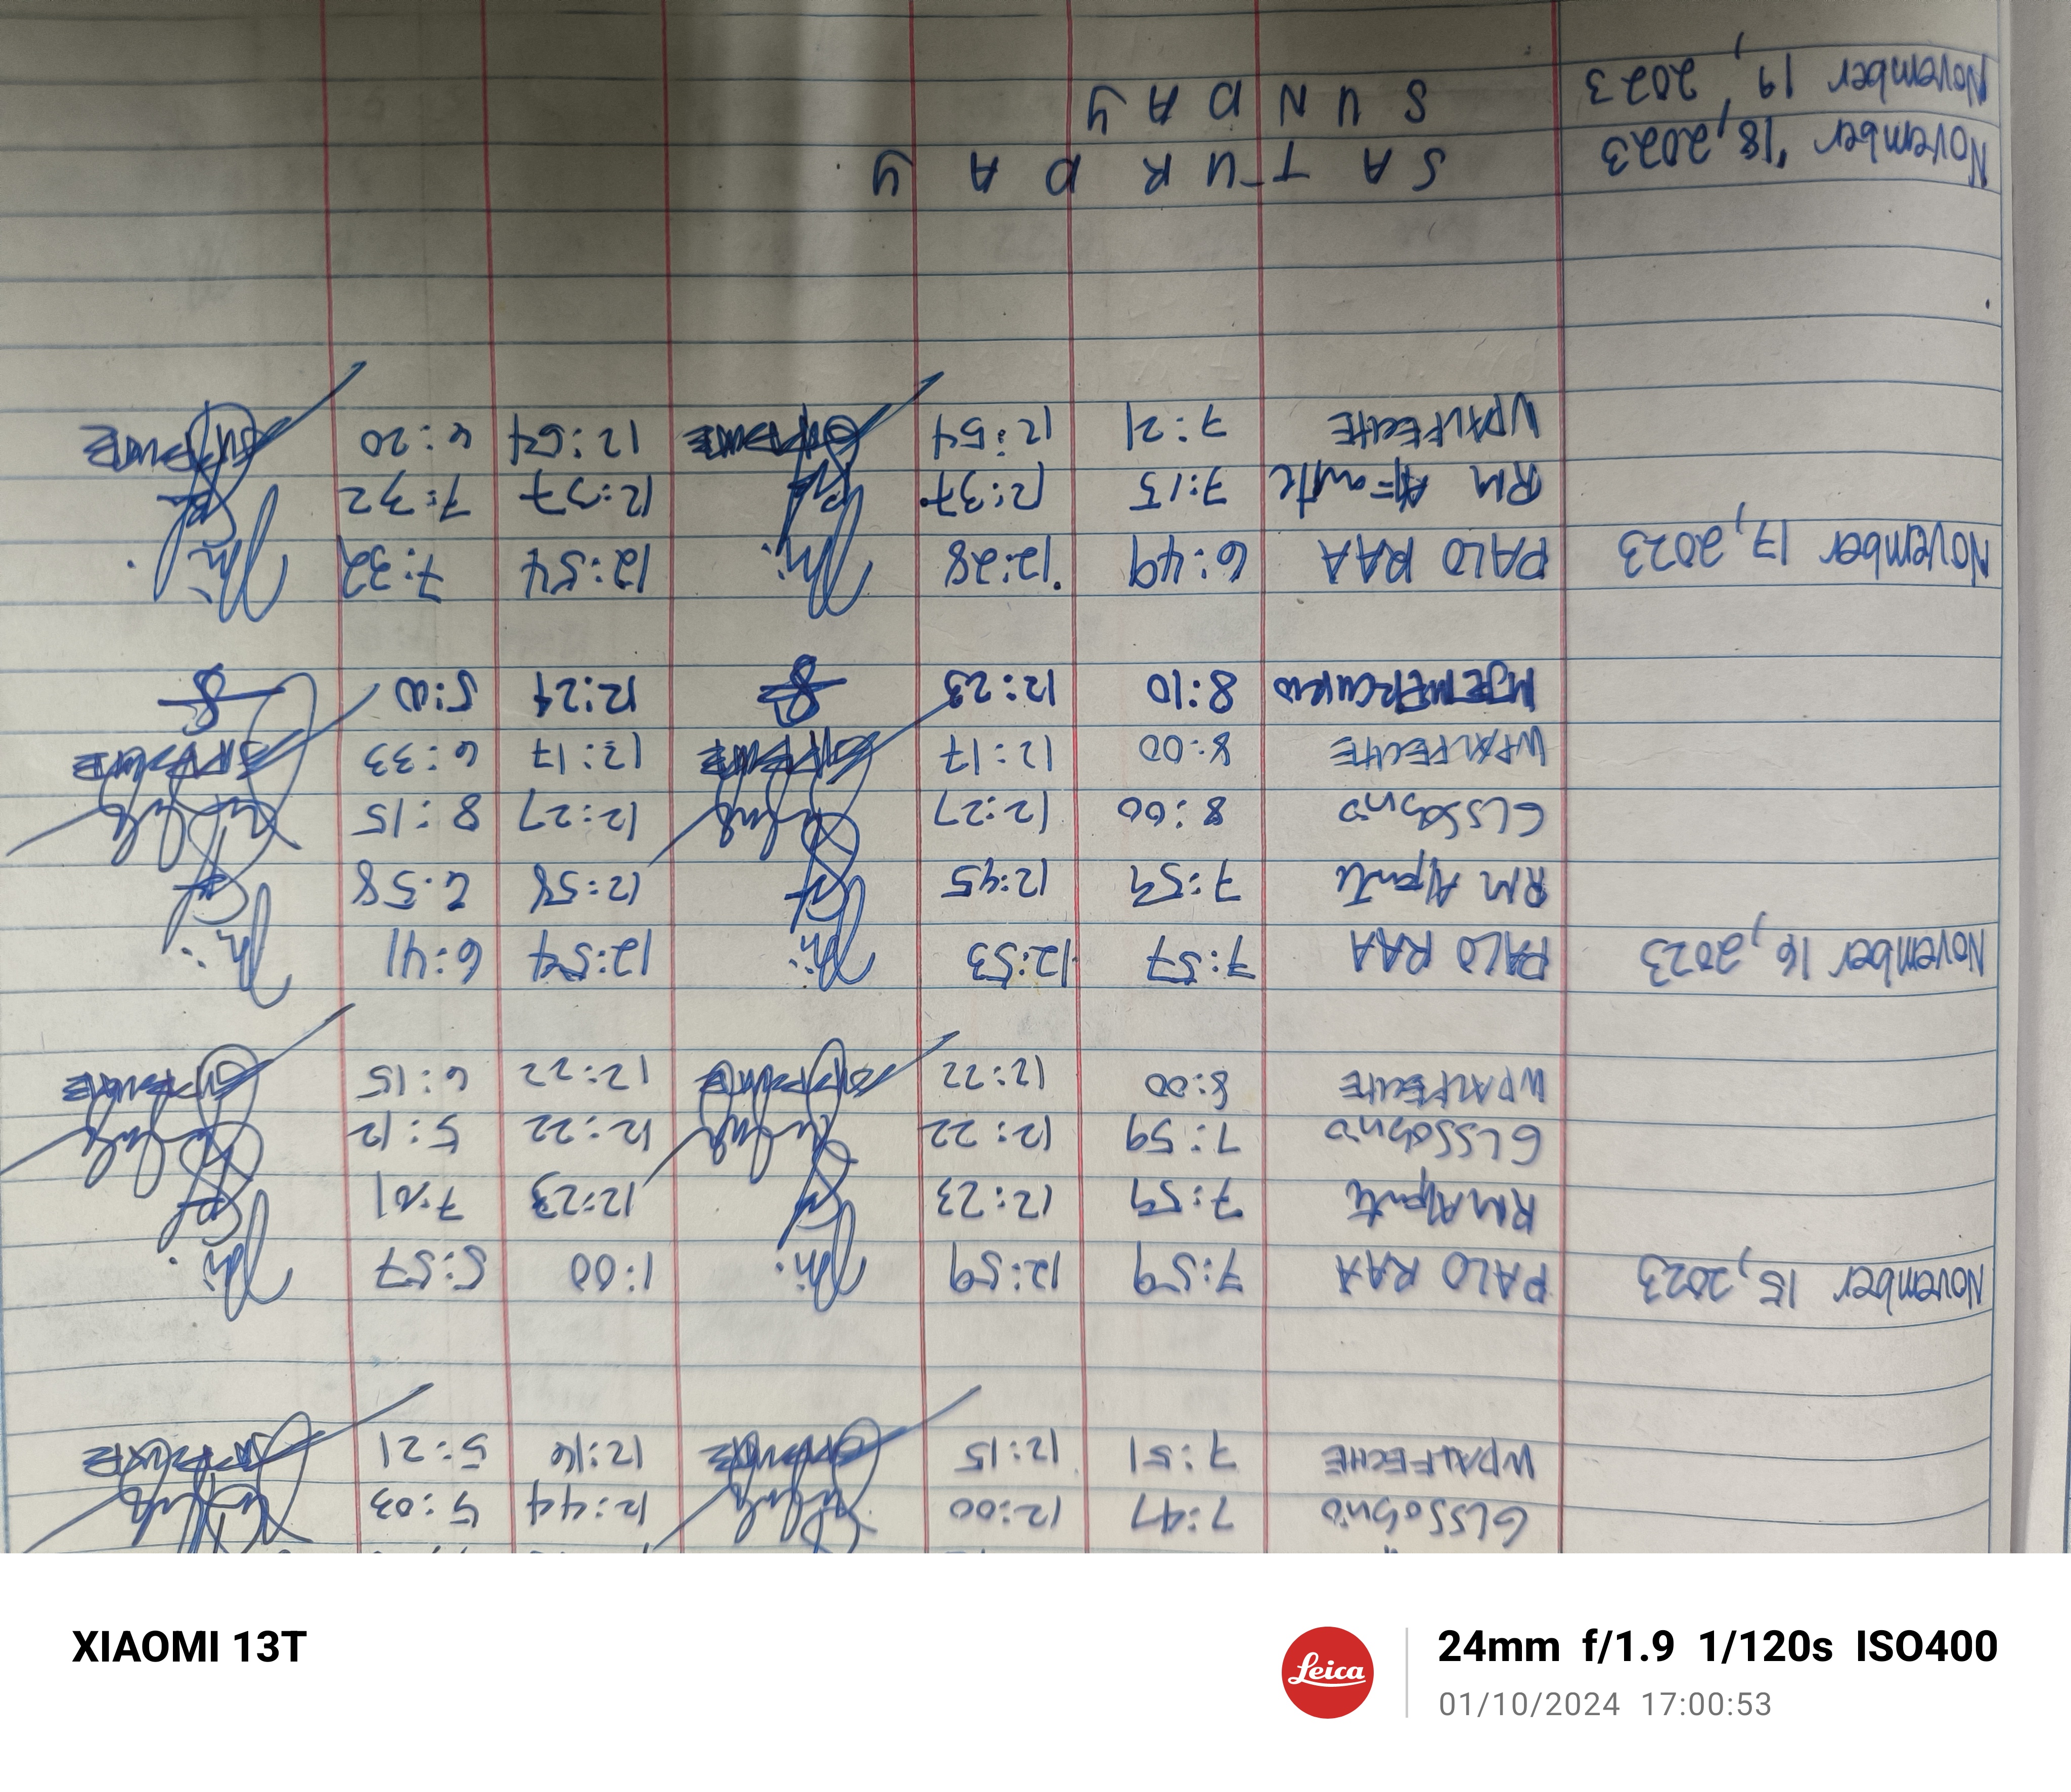 7:47 12:00 12:44 5:03
WPALFECHE 7:51 12:15 12:16 5:21
November 15, 2023 PALO RAA 7:59 12:59 1:00 5:57
RM 7:59 12:23 12:23 7:01
7:59 12:22 12:22 5:12
WPALFECHE 8:00 12:22 12:22 6:15
November 16, 2023 PALO RAA 7:57 12:53 12:54 6:41
RM 7:59 12:45 12:58 6:58
8:00 12:27 12:27 8:15
WPALFECHE 8:00 12:17 12:17 6:33
MJEMERCURIO 8:10 12:23 12:24 5:00
November 17, 2023 PALO RAA 6:49 12:28 12:54 7:32
RM 7:15 12:37 12:37 7:32
WPALFECHE 7:21 12:54 12:54 6:20
November 18, 2023 S A T U R D A Y
November 19, 2023 S U N D A Y
XIAOMI 13T
Leica
24mm f/1.9 1/120s ISO400
01/10/2024 17:00:53